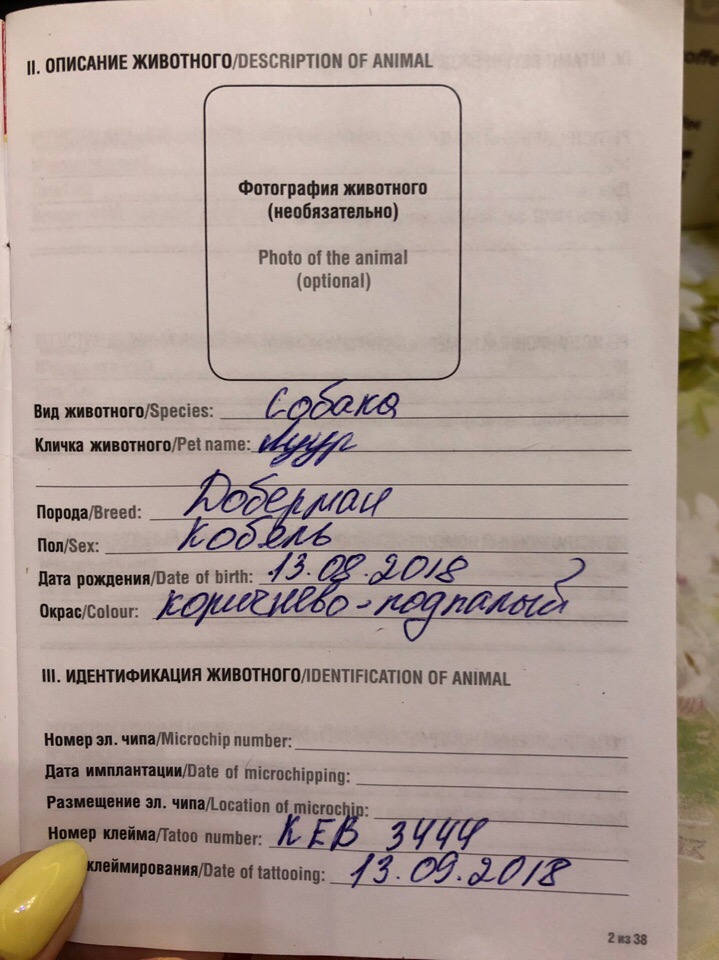 II. ОПИСАНИЕ ЖИВОТНОГО/DESCRIPTION OF ANIMAL
Фотография животного
(необязательно)
Photo of the animal
(optional)
Вид животного/Species: Собака
Кличка животного/Pet name:
Порода/Breed: Доберман
Пол/Sex: Кобель
Дата рождения/Date of birth: 13.08.2018
Окрас/Colour: коричнево-подпалый
III. ИДЕНТИФИКАЦИЯ ЖИВОТНОГО/IDENTIFICATION OF ANIMAL
Номер эл. чипа/Microchip number:
Дата имплантации/Date of microchipping:
Размещение эл. чипа/Location of microchip:
Номер клейма/Tatoo number: КЕВ 3444
клеймирования/Date of tattooing: 13.09.2018
2 из 38